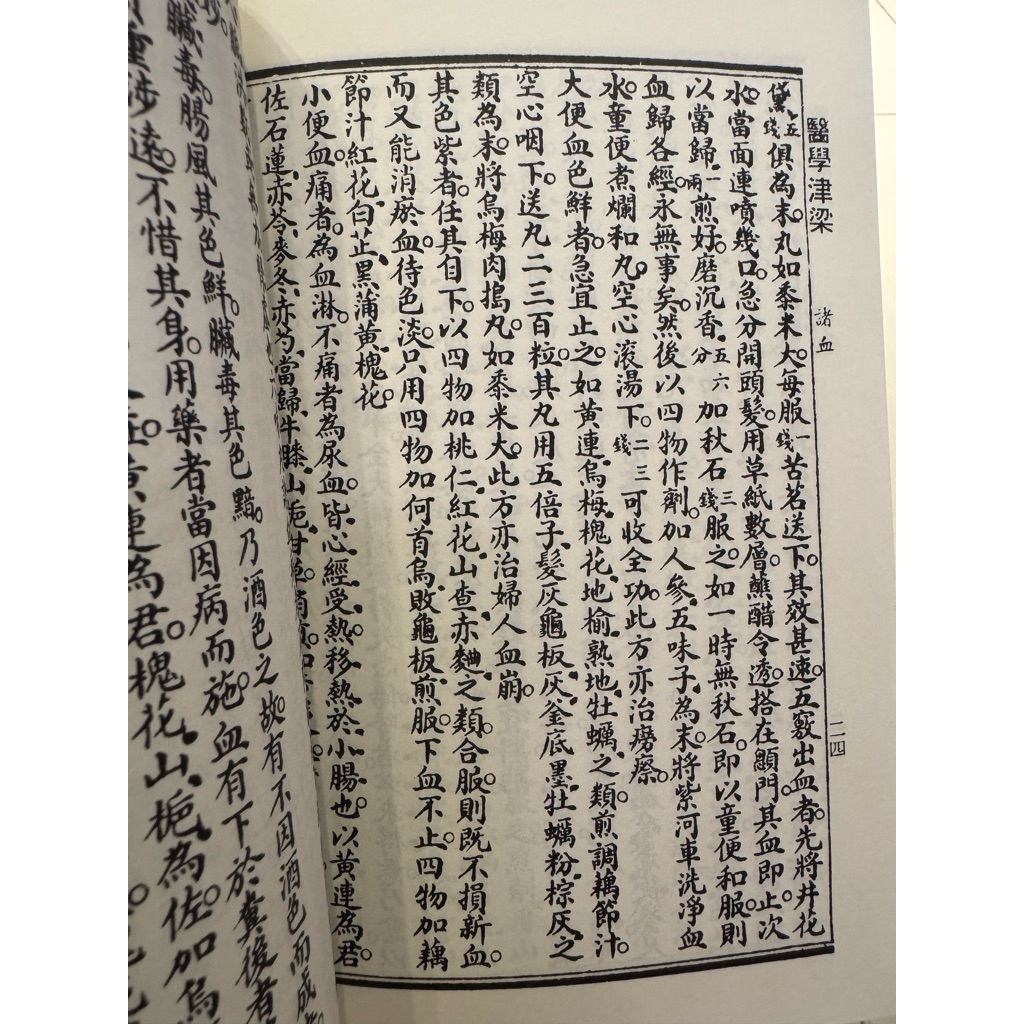 醫學津梁
諸血
二四
黛五錢俱為末。丸如黍米大。每服一錢苦茗送下。其效甚速。五竅出血者。先將井花
水。當面連噴幾口。急分開頭髮。用草紙數層。蘸醋令透。搭在顖門。其血即止。次
以當歸一兩煎好。磨沉香五六分加秋石三錢服之。如一時無秋石。即以童便和服。則
血歸各經。永無事矣。然後以四物作劑。加人參、五味子、為末。將紫河車洗淨血
水。童便煮爛和丸。空心滾湯下。二三錢可收全功。此方亦治癆瘵。
大便血色鮮者。急宜止之。如黃連、烏梅、槐花、地榆、熟地、牡蠣、之類。煎調藕節汁。
空心咽下。送丸二三百粒。其丸用五倍子、髮灰、龜板灰、釜底墨、牡蠣粉、棕灰、之
類為末。將烏梅肉搗丸。如黍米大。此方亦治婦人血崩。
其色紫者。任其自下。以四物加桃仁、紅花、山查、赤麯、之類。合服。則既不損新血。
而又能消瘀血。待色淡。只用四物加何首烏、敗龜板、煎服。下血不止。四物加藕
節汁、紅花、白芷、黑蒲黃、槐花。
小便血痛者。為血淋。不痛者為尿血。皆心經受熱。移熱於小腸也。以黃連為君。
佐石蓮、赤苓、麥冬、赤芍、當歸、牛膝、山梔、甘
臟毒。腸風其色鮮。臟毒其色黯。乃酒色之故。有不因酒色而成
重涉遠。不惜其身。用藥者當因病而施。血有下於糞後者
黃連為君。槐花、山梔為佐。加烏